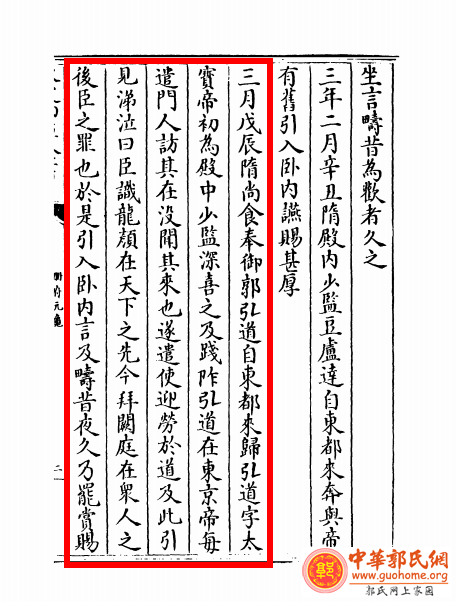 坐言疇昔為歡者久之
三年二月辛丑隋殿内少監豆盧達自東都來奔與帝
有舊引入卧内讌賜甚厚
三月戊辰隋尚食奉御郭弘道自東都來歸弘道字太
寶帝初為殿中少監深喜之及踐阼弘道在東京帝每
遣門人訪其在没聞其來也遂遣使迎勞於道及此引
見涕泣曰臣識龍顏在天下之先今拜闕庭在衆人之
後臣之罪也於是引入卧内言及疇昔夜久乃罷賞賜
册府元龜
二
中華郭氏網
www.guohome.org
郭氏网上家园